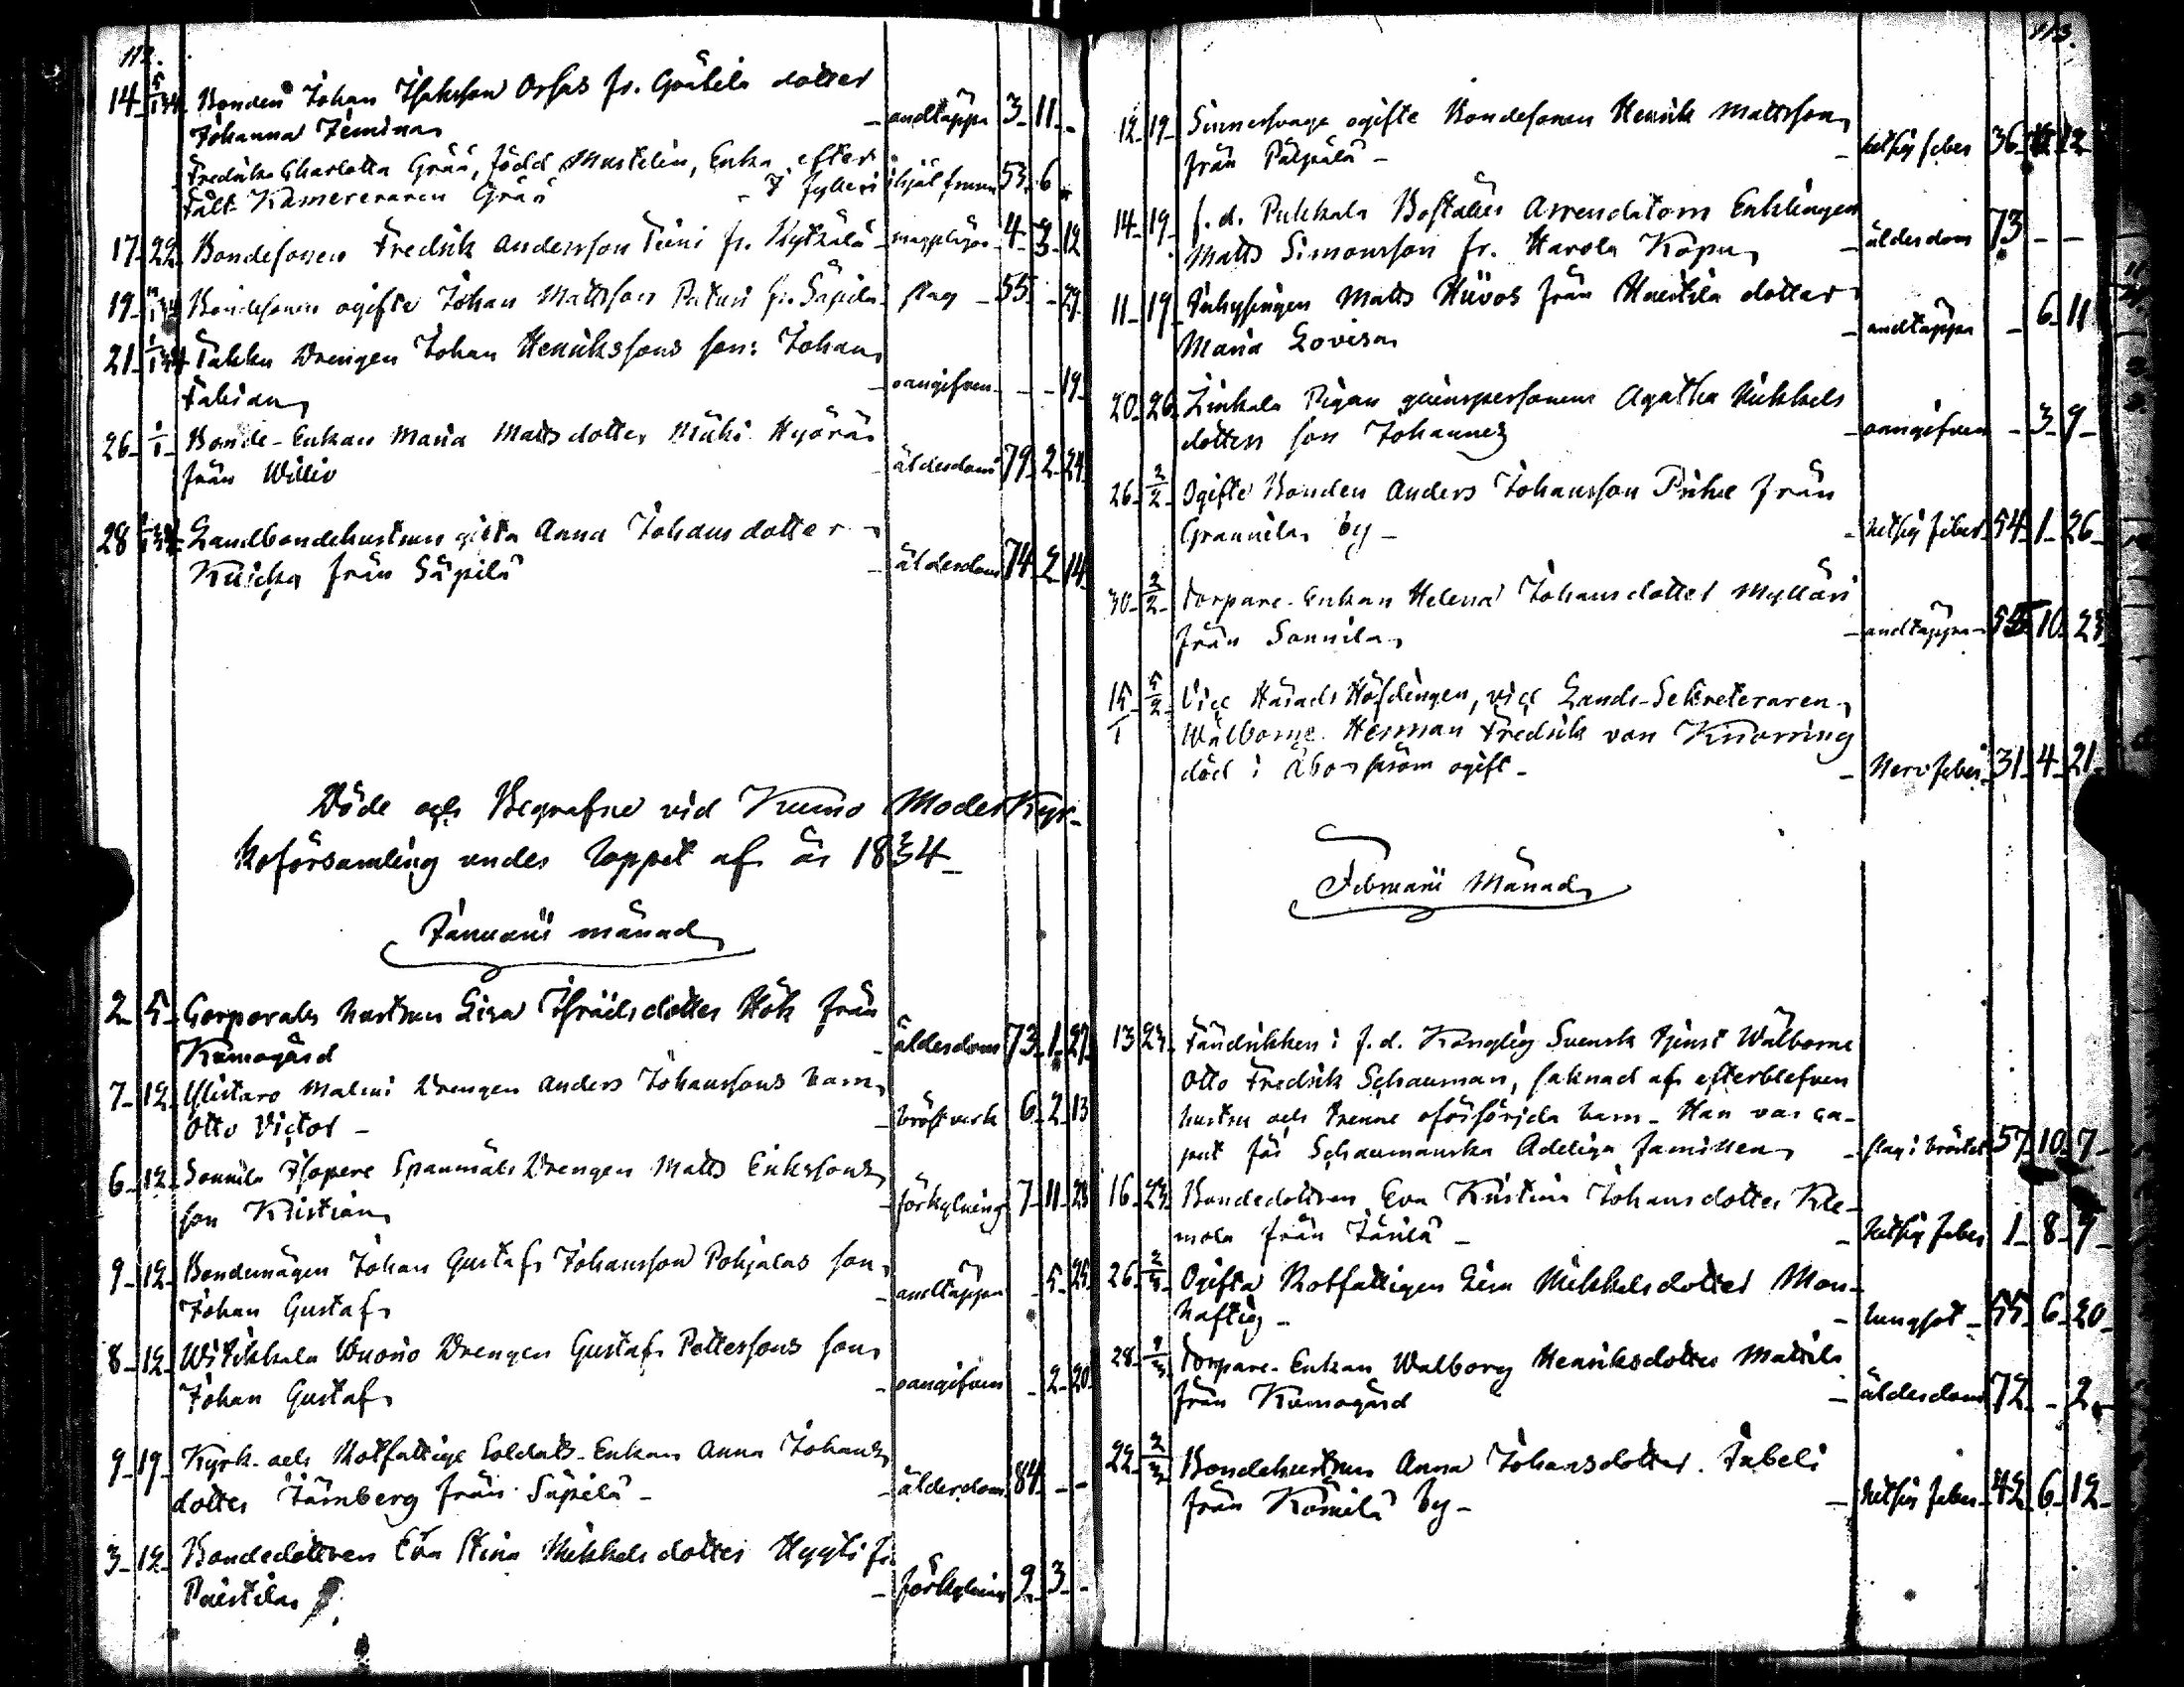 112.
14 5/1 34 Bonden Johan Isaksson Orhas fr. Gräbila dotter
Johanna Jemina - andtäppa 3 11 -
Fredrika Charlotta Grää, född Mustelin, Enka efter
Fält Kamereraren Grää - ihjäl frusen 53 6
17 22 Bondesonen Fredrik Andersson fr. Kyttälä - 4 3 12
19 Bondesonen ogifte Johan Mattsson fr. Säpilä slag - 55 - 29
21 Takku Drengen Johan Henrikssons son: Johan
Fabian - oangifven - - 19
26 1/1 Bonde-Enkan Maria Matts dotter Hyöräs
från - ålderdom 79 2 24
28 Landbondehustrun gifta Anna Johans dotter
från Säpilä - ålderdom 74 2 14
Döde och Begrafne vid Kumo Moder Kyr-
koförsamling under loppet af år 1834
Januarii månad
2 5 Corporals hustrun Lisa Israelsdotter Hök från
Kumogård - ålderdom 73 1 27
7 12 Ylistaro Malmi Drengen Anders Johanssons barn
Otto Victor - - bröstverk 6 2 13
6 12 Sonnila Isopere Spannmåls Drengen Matts Erikssons
son Kristian - förkylning 7 11 23
9 12 Bondemågen Johan Gustaf Johansson Pohjalas son
Johan Gustaf - andtäppa - 5 25
8 12 Witikkala Wuorio Drengen Gustaf Pettersons son
Johan Gustaf - oangifven - 2 20
9 19 Kyrk- och Rotfattige Soldats-Enkan Anna Johans
dotter Järnberg från Säpilä - - ålderdom 84 - -
3 12 Bondedottren Eva Stina Mikkels dotter Hyyti fr.
Paistila - förkylning 9 3 -
113.
12 19 Sinnessvage ogifte Bondesonen Henrik Mattsson
från Pälpälä - - hetsig feber 36 12
14 19 f.d. Pukkala Boställes Arrendatorn Enklingen
Matts Simonsson fr. Harola - ålderdom 73 - -
11 19 Inhysingen Matts från dotter
Maria Lovisa - andtäppa - 6 11
20 26 Linkala Pigan qvinspersonen Agatha Mikkels
dotters son Johannes - oangifven - 3 9
26 2/2 Ogifte Bonden Anders Johansson från
by - - hetsig feber 54 1 26
30 2/2 Torpare-Enkan Helena Johans dotter Mylläri
från Sonnila - andtäppa 55 10 23
15/1 5/2 Vice Härads Höfdingen, vice Lands-Sekreteraren
Wälborne Herman Fredrik von Knorring
död i Åbo såsom ogift - - Nervfeber 31 4 21
Februarii Månad
13 23 Fändrikken i f.d. Konglig Svensk tjenst Wälborne
Otto Fredrik Schauman, saknad af efterblefven
hustru och trenne oförsörjda barn - Han var ca-
put för Schaumanska Adeliga familien - slag i bröstet 57 10 7
16 23 Bondedottren Eva Kristina Johansdotter Kle-
mola från Järilä - - hetsig feber 1 8 7
26 2/3 Ogifta Rotfattigen Lisa Mikkelsdotter Man-
haftig - - lungsot 55 6 20
28 Torpare-Enkan Walborg Henriksdotter Mattila
från Kumogård - ålderdom 72 - 2
22 2/3 Bondehustrun Anna Johansdotter Fabeli
från by - - hetsig feber 42 6 12